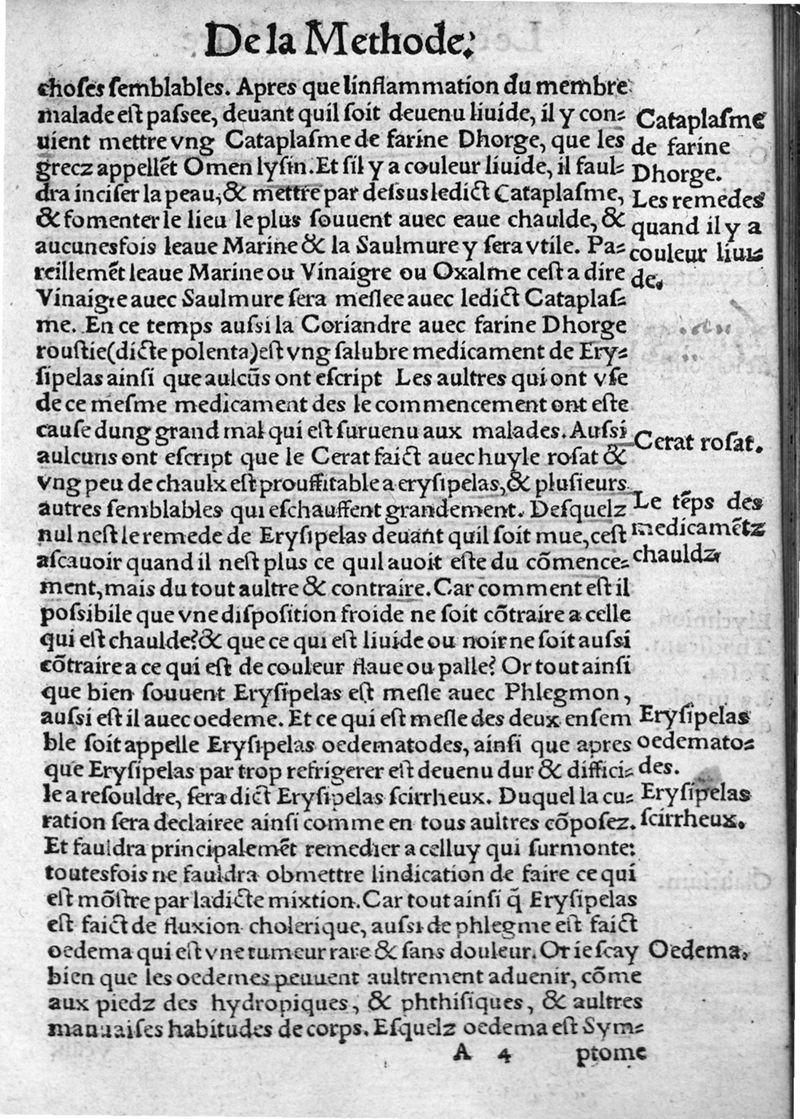 De la Methode.
choses semblables. Apres que linflammation du membre
malade est passee, deuant quil soit deuenu liuide, il y con-
uient mettre vng Cataplasme de farine Dhorge, que les
grecz appellēt Omen lysin. Et sil y a couleur liuide, il faul-
dra inciser la peau, & mettre par dessus ledict Cataplasme,
& fomenter le lieu le plus souuent auec eaue chaulde, &
aucunesfois leaue Marine & la Saulmure y sera vtile. Pa-
reillemēt leaue Marine ou Vinaigre ou Oxalme cest a dire
Vinaigre auec Saulmure sera meslee auec ledict Cataplas-
me. En ce temps aussi la Coriandre auec farine Dhorge
roustie (dicte polenta) est vng salubre medicament de Ery-
sipelas ainsi que aulcūs ont escript Les aultres qui ont vse
de ce mesme medicament des le commencement ont este
cause dung grand mal qui est suruenu aux malades. Aussi
aulcuns ont escript que le Cerat faict auec huyle rosat &
vng peu de chaulx est prouffitable a erysipelas, & plusieurs
autres semblables qui eschauffent grandement. Desquelz
nul nest le remede de Erysipelas deuant quil soit mue, cest
ascauoir quand il nest plus ce quil auoit este du cōmence-
ment, mais du tout aultre & contraire. Car comment est il
possibile que vne disposition froide ne soit cōtraire a celle
qui est chaulde? & que ce qui est liuide ou noir ne soit aussi
cōtraire a ce qui est de couleur flaue ou palle? Or tout ainsi
que bien souuent Erysipelas est mesle auec Phlegmon,
aussi est il auec oedeme. Et ce qui est mesle des deux ensem
ble soit appelle Erysipelas oedematodes, ainsi que apres
que Erysipelas par trop refrigerer est deuenu dur & diffici-
le a resouldre, sera dict Erysipelas scirrheux. Duquel la cu-
ration sera declairee ainsi comme en tous aultres cōposez.
Et fauldra principalemēt remedier a celluy qui surmonte:
toutesfois ne fauldra obmettre lindication de faire ce qui
est mōstre par ladicte mixtion. Car tout ainsi q̄ Erysipelas
est faict de fluxion cholerique, aussi de phlegme est faict
oedema qui est vne tumeur rare & sans douleur. Or ie scay
bien que les oedemes peuuent aultrement aduenir, cōme
aux piedz des hydropiques, & phthisiques, & aultres
mauuaises habitudes de corps. Esquelz oedema est Sym-
A 4 ptome
Cataplasme
de farine
Dhorge.
Les remedes
quand il y a
couleur liui-
de.
Cerat rosat.
Le tēps des
medicamētz
chauldz.
Erysipelas
oedemato-
des.
Erysipelas
scirrheux.
Oedema.